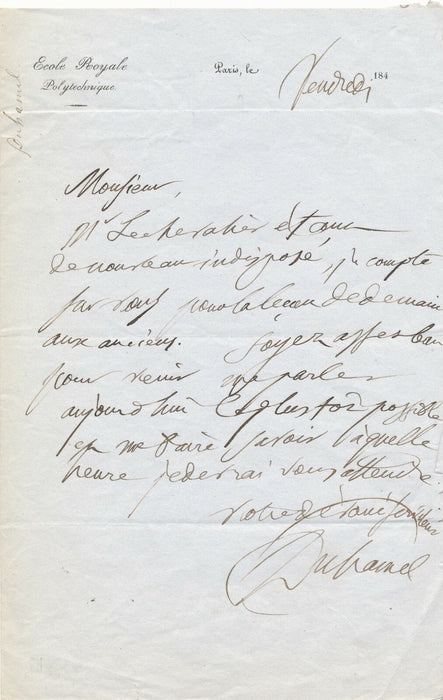 Ecole Royale
Polytechnique.
Paris, le Vendredi 184
Duhamel
Monsieur,
Mr Lechevalier étant
de nouveau indisposé, je compte
sur vous pour la leçon de demain
aux anciens. Soyez assez bon
pour venir me parler
aujourd'hui le plustôt possible
et me faire savoir à quelle
heure je devrai vous attendre.
Votre dévoué serviteur
Duhamel